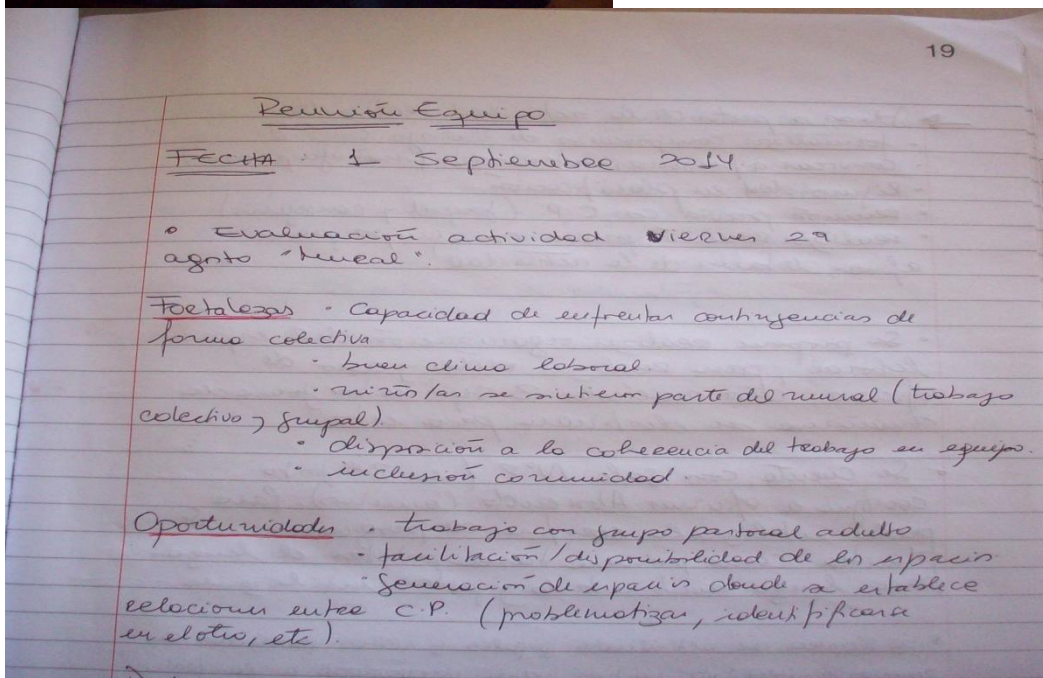 19
Reunión Equipo
FECHA : 1 Septiembre 2014.
• Evaluación actividad viernes 29
agosto "Mural".
Fortalezas · Capacidad de enfrentar contingencias de
forma colectiva
· buen clima laboral.
· niños/as se sintieron parte del mural (trabajo
colectivo y grupal).
· disposición a la coherencia del trabajo en equipo.
· inclusión comunidad.
Oportunidades · trabajo con grupo pastoral adulto
· facilitación/disponibilidad de los espacios
· generación de espacios donde se establece
relaciones entre C.P. (problematizar, identificarse
en el otro, etc).